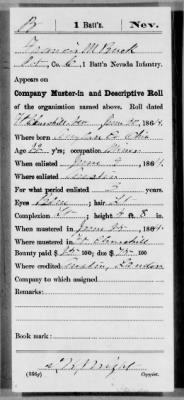 B 1 Batt's. Nev.
Francis M. Buck
Pvt, Co. C, 1 Batt's Nevada Infantry.
Appears on
Company Muster-in and Descriptive Roll
of the organization named above. Roll dated
Ft Churchill Nev June 25, 1864.
Where born Ohio
Age y'rs; occupation Miner
When enlisted June 9, 1864.
Where enlisted Austin
For what period enlisted 3 years.
Eyes Blue; hair
Complexion ; height ft. 8 in.
When mustered in June 25, 1864.
Where mustered in Ft. Churchill
Bounty paid $ 100; due $ 100
Where credited Austin, Lander
Company to which assigned
Remarks:
Book mark:
Wright
Copyist.